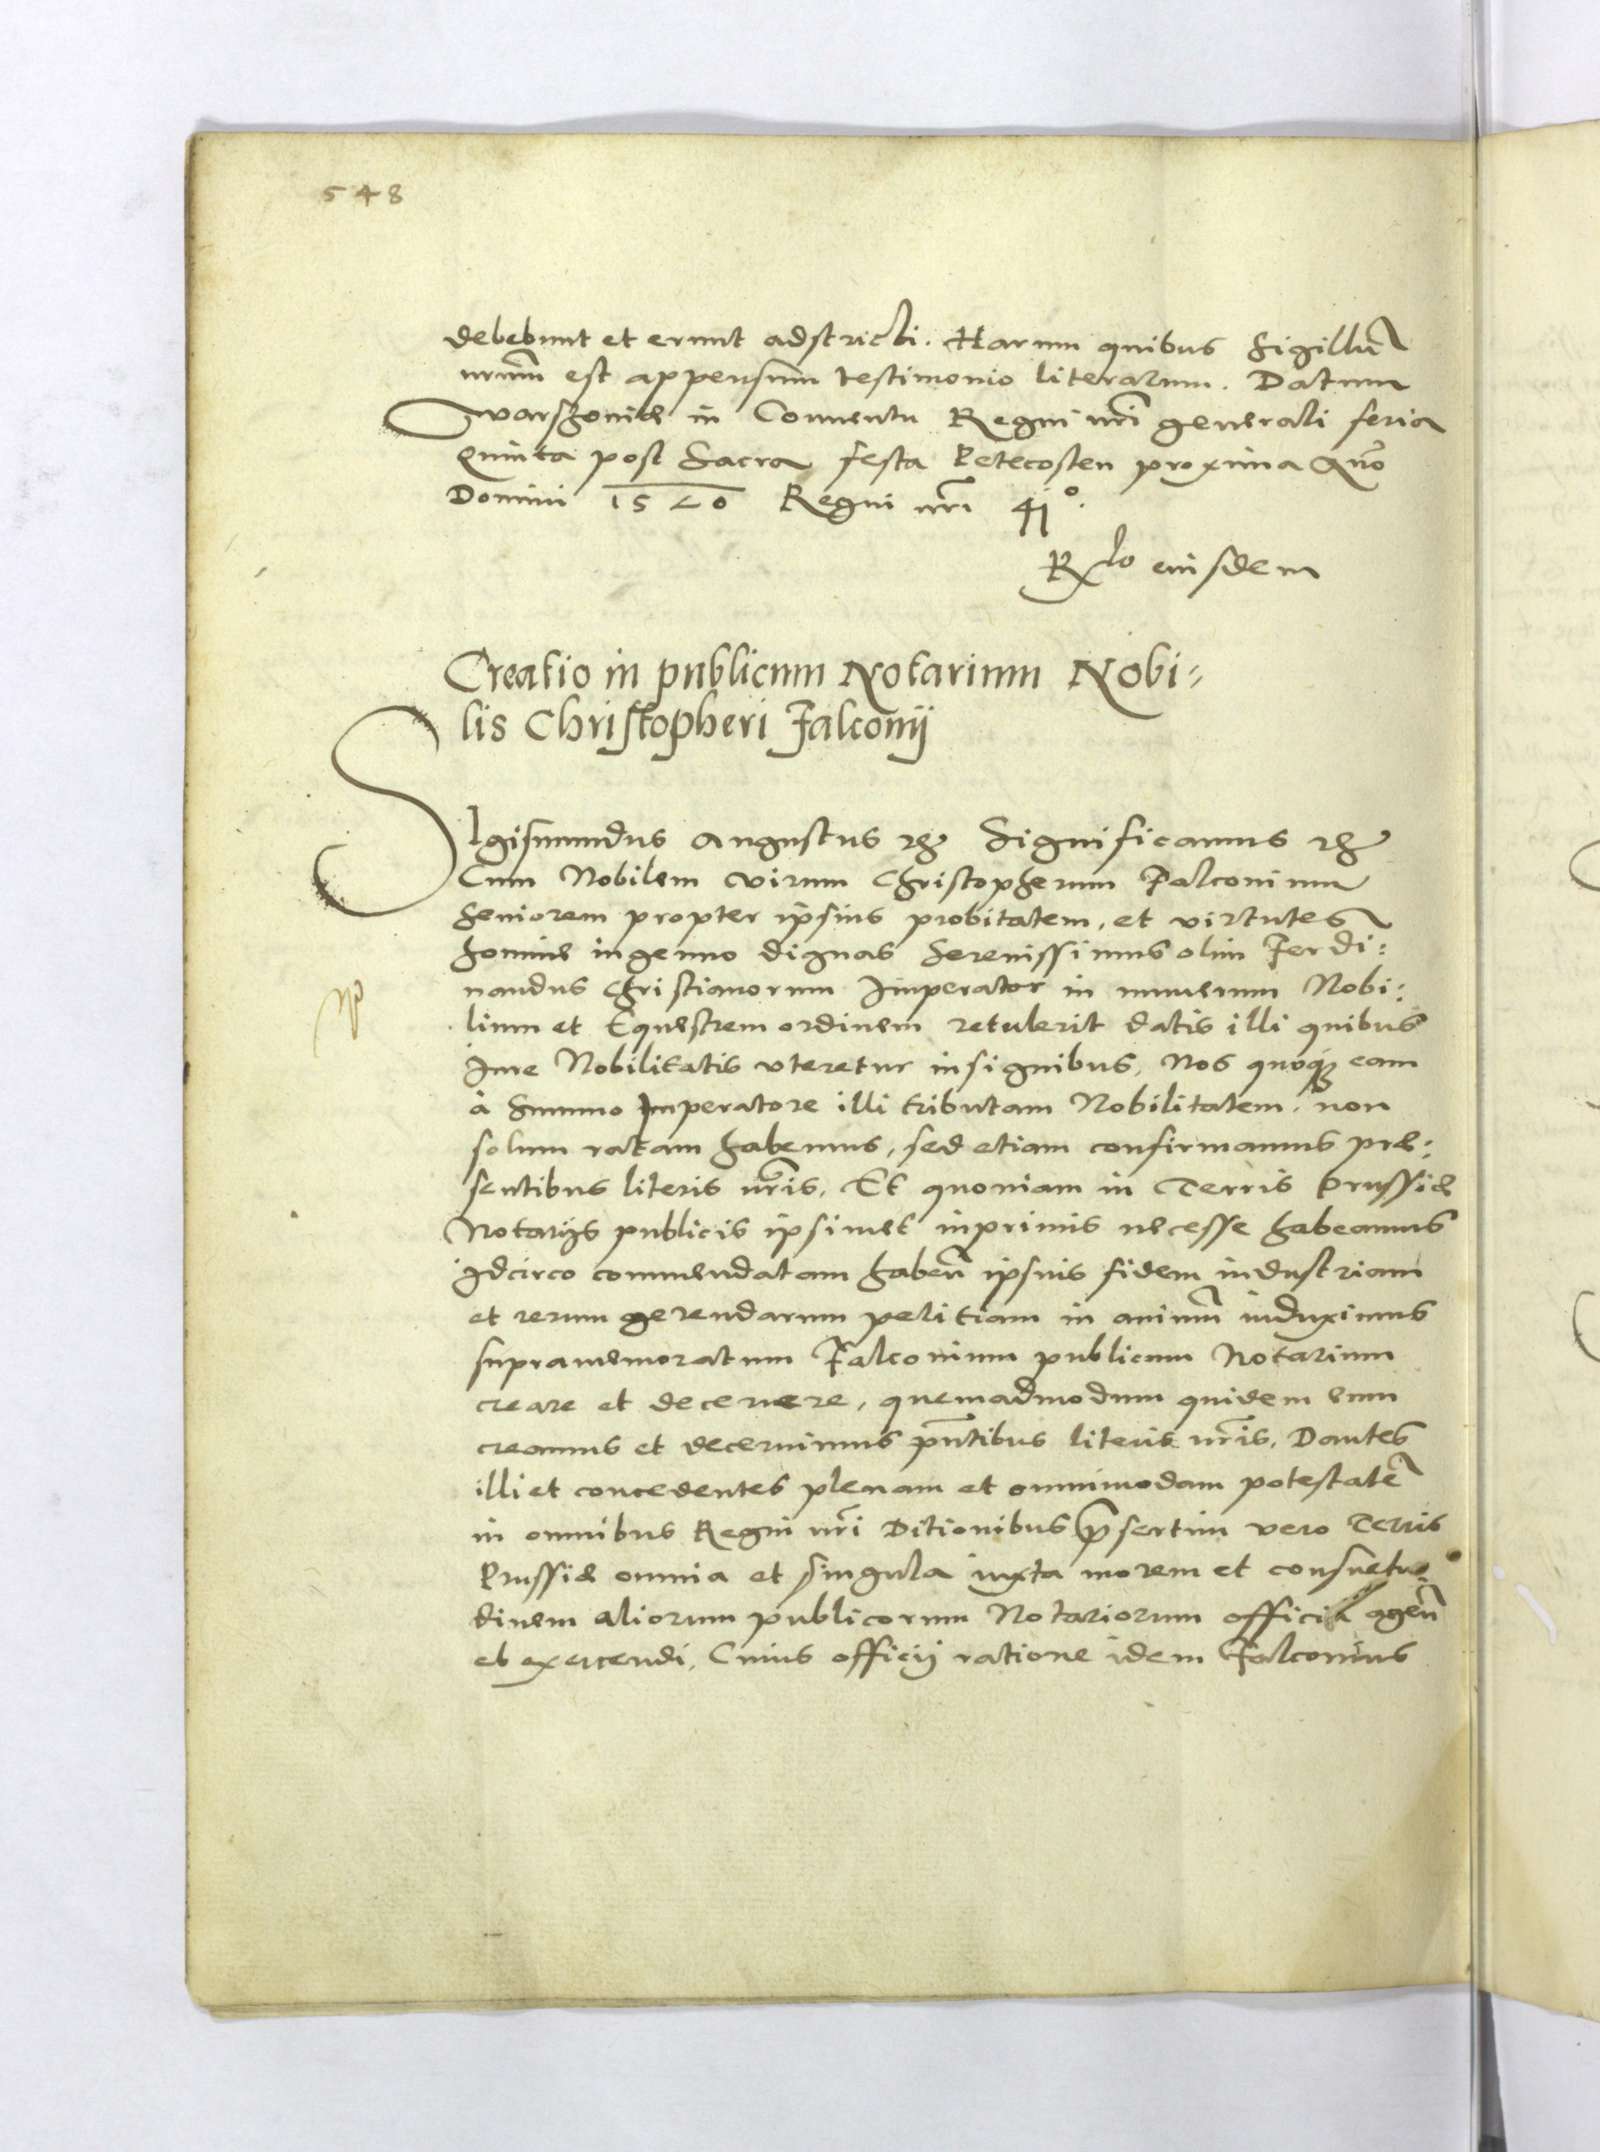 548
debebunt et erunt adstricti. Harum quibus Sigillũ
nrũm est appensum testimonio literarum. Datum
Warszoviæ in Conventu Regni nri generali feria
Quinta post Sacra festa Petecosten proxima Año
Domini 1570 Regni nri 41°.
Rlo eiusdem
Creatio in publicum Notarium Nobi-
lis Christopheri Falconij
Sigismundus Augustus etc Significamus etc
Cum Nobilem virum Christopherum Falconium
Seniorem propter ipsius probitatem, et virtutes
homine ingenuo dignas Serenissimus olim Ferdi:
nandus Christianorum Imperator in numerum Nobi:
lium et Equestrem ordinem retulerit datis illi quibus
Iure Nobilitatis uteretur insignibus, Nos quoque eam
à Summo Imperatore illi tributam Nobilitatem, non
solum ratam habemus, sed etiam confirmamus præ:
sentibus literis nris. Et quoniam in Terris Prussiæ
Notarijs publicis ipsimet inprimis necesse habeamus
Idcirco commendatam habeñ ipsius fidem industriam
et rerum gerendarum peritiam in animũ induximus
supramemoratum Falconium publicum Notarium
creare et decernere, quemadmodum quidem eum
creamus et decernimus pntibus literis nris. Dantes
illi et concedentes plenam et omnimodam potestatẽ
in omnibus Regni nri Ditionibus p̃sertim vero Terris
Prussiæ omnia et singula iuxta morem et consuetu-
dinem aliorum publicorum Notariorum officia ageñ
et exercendi, Cuius officij ratione idem Falconius